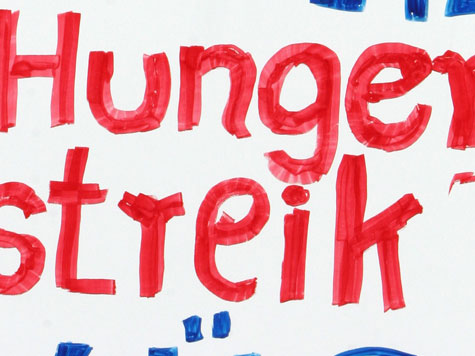 Hunger
streik